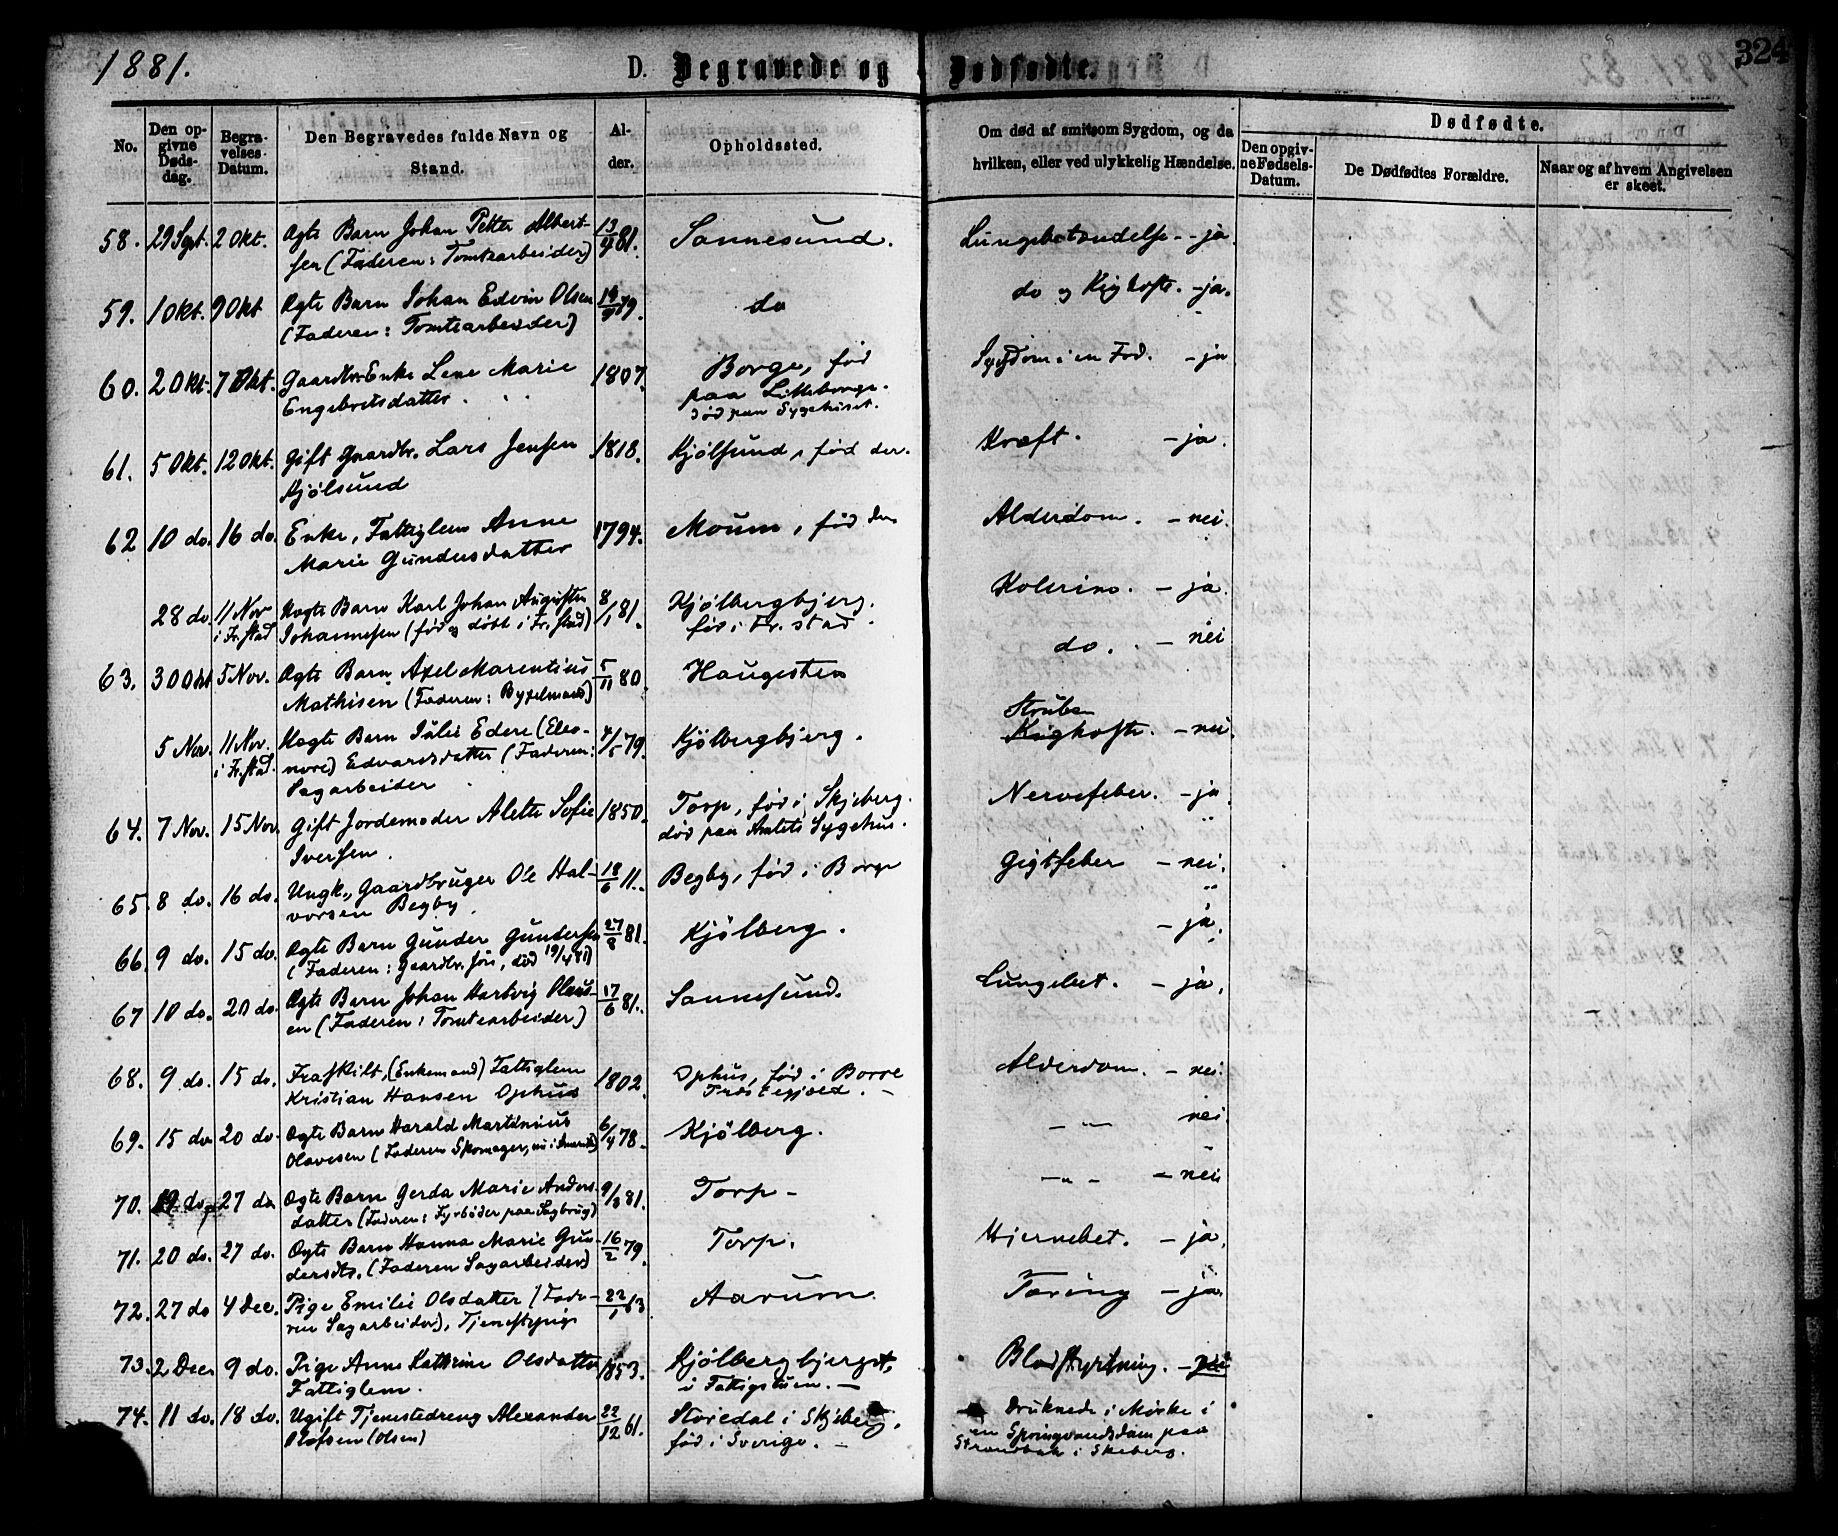 1881.
D. Begravede og Dødfødte.
324
No.
Den opgivne Dødsdag.
Begravelses-Datum.
Den Begravedes fulde Navn og Stand.
Alder.
Opholdssted.
Om død af smitsom Sygdom, og da hvilken, eller ved ulykkelig Hændelse.
Dødfødte.
Den opgivne Fødsels-Datum.
De Dødfødtes Forældre.
Naar og af hvem Angivelsen er skeet.
58. 29 Sept. 2 Okt. Ægte Barn Johan Petter Albert- 13/4 81. Sannesund. Lungebetændelse - ja.
sen (Faderen: Tomtearbeider)
59. 1 Okt. 9 Okt Ægte Barn Johan Edvin Olsen 79. do do og Kighoste. - ja.
(Faderen: Tomtearbeider)
60. 2 Okt. 7 Okt. Gaardbr. Enke Lene Marie 1807. Borge, fød Sygdom i en Fod. - ja
Engebretsdatter. paa Litleborge.
død paa Sygehuset.
61. 5 Okt. 12 Okt. Gift Gaardbr. Lars Jensen 1818. Kjølsund, fød der. Kræft. - ja.
Kjølsund
62 10 do. 16 do. Enke, Fattiglem Anne 1794. Moum, fød der Alderdom. - nei.
Marie Gundersdatter
28 do. 11 Nov Uægte Barn Karl Johan Augustin 8/1 81. Kjølbergbjerg. Kolerine. - ja.
i Fr.stad Johannesen (fød og døbt i Fr.stad) fød i Fr.stad.
63. 30 Okt 5 Nov. Ægte Barn Axel Marentius 5/11 80. Haugesten do. - nei
Mathisen (Faderen: Byxelmand)
5 Nov. 11 Nov. Uægte Barn Julie Edere (Eleo- 4/5 79. Kjølbergbjerg. Struben
i Fr.stad. nore) Edvardsdatter (Faderen: Kighoste. - nei.
Sagarbeider
64. 7 Nov. 15 Nov. Gift Jordemoder Alette Sofie 1850. Torp, fød i Skjeberg. Nervefeber. - ja
Iversen. død paa Amtets Sygehus.
65. 8 do. 16 do. Ungk., Gaardbruger Ole Hal- 18/6 11. Begby, fød i Borge Gigtfeber - nei.
vorsen Begby.
66. 9 do. 15 do. Ægte Barn Gunder Gundersen 27/8 81. Kjølberg. - ja.
(Faderen: Gaardbr. Jøn, død 19/4 81)
67 10 do. 20 do. Ægte Barn Johan Hartvig Olaus- 17/6 81. Sannesund. Lungebet. - ja.
en (Faderen: Tomtearbeider)
68. 9 do. 15 do. Fraskilt, (Enkemand) Fattiglem 1802. Ophus, fød i Borre Alderdom. - nei.
Kristian Hansen Ophus Præstegjæld. -
69. 15 do 20 do. Ægte Barn Harald Martinius 6/4 78. Kjølberg. - " - nei.
Olavesen (Faderen Skomager, nu i Amerika)
70. 19 do. 27 do. Ægte Barn Gerda Marie Anders- 9/3 81. Torp - - " - - nei
datter (Faderen: Fyrbøder paa Sagbrug)
71. 20 do. 27 do. Ægte Barn Hanna Marie Gun- 16/2 79. Torp. Hjernebet. - ja.
dersdtr. (Faderen Sagarbeider)
72. 27 do 4 Dec. Pige Emilie Olsdatter (Fade- 22/1 63 Aarum Tæring - ja.
ren Sagarbeider), Tjenestepige
73. 2 Dec 9 do. Pige Anne Kathrine Olsdatter 1853. Kjølbergbjerget, Blodstyrtning. - nei
Fattiglem. i Fattigstuen. -
74. 11 do. 18 do. Ugift Tjenestedreng Alexander 22/12 61. Storedal i Skjeberg, Druknede i Mørke i
Olofsen (Olsen) fød i Sverige. - en Springvandsdam paa
Strandbak i Skeberg.